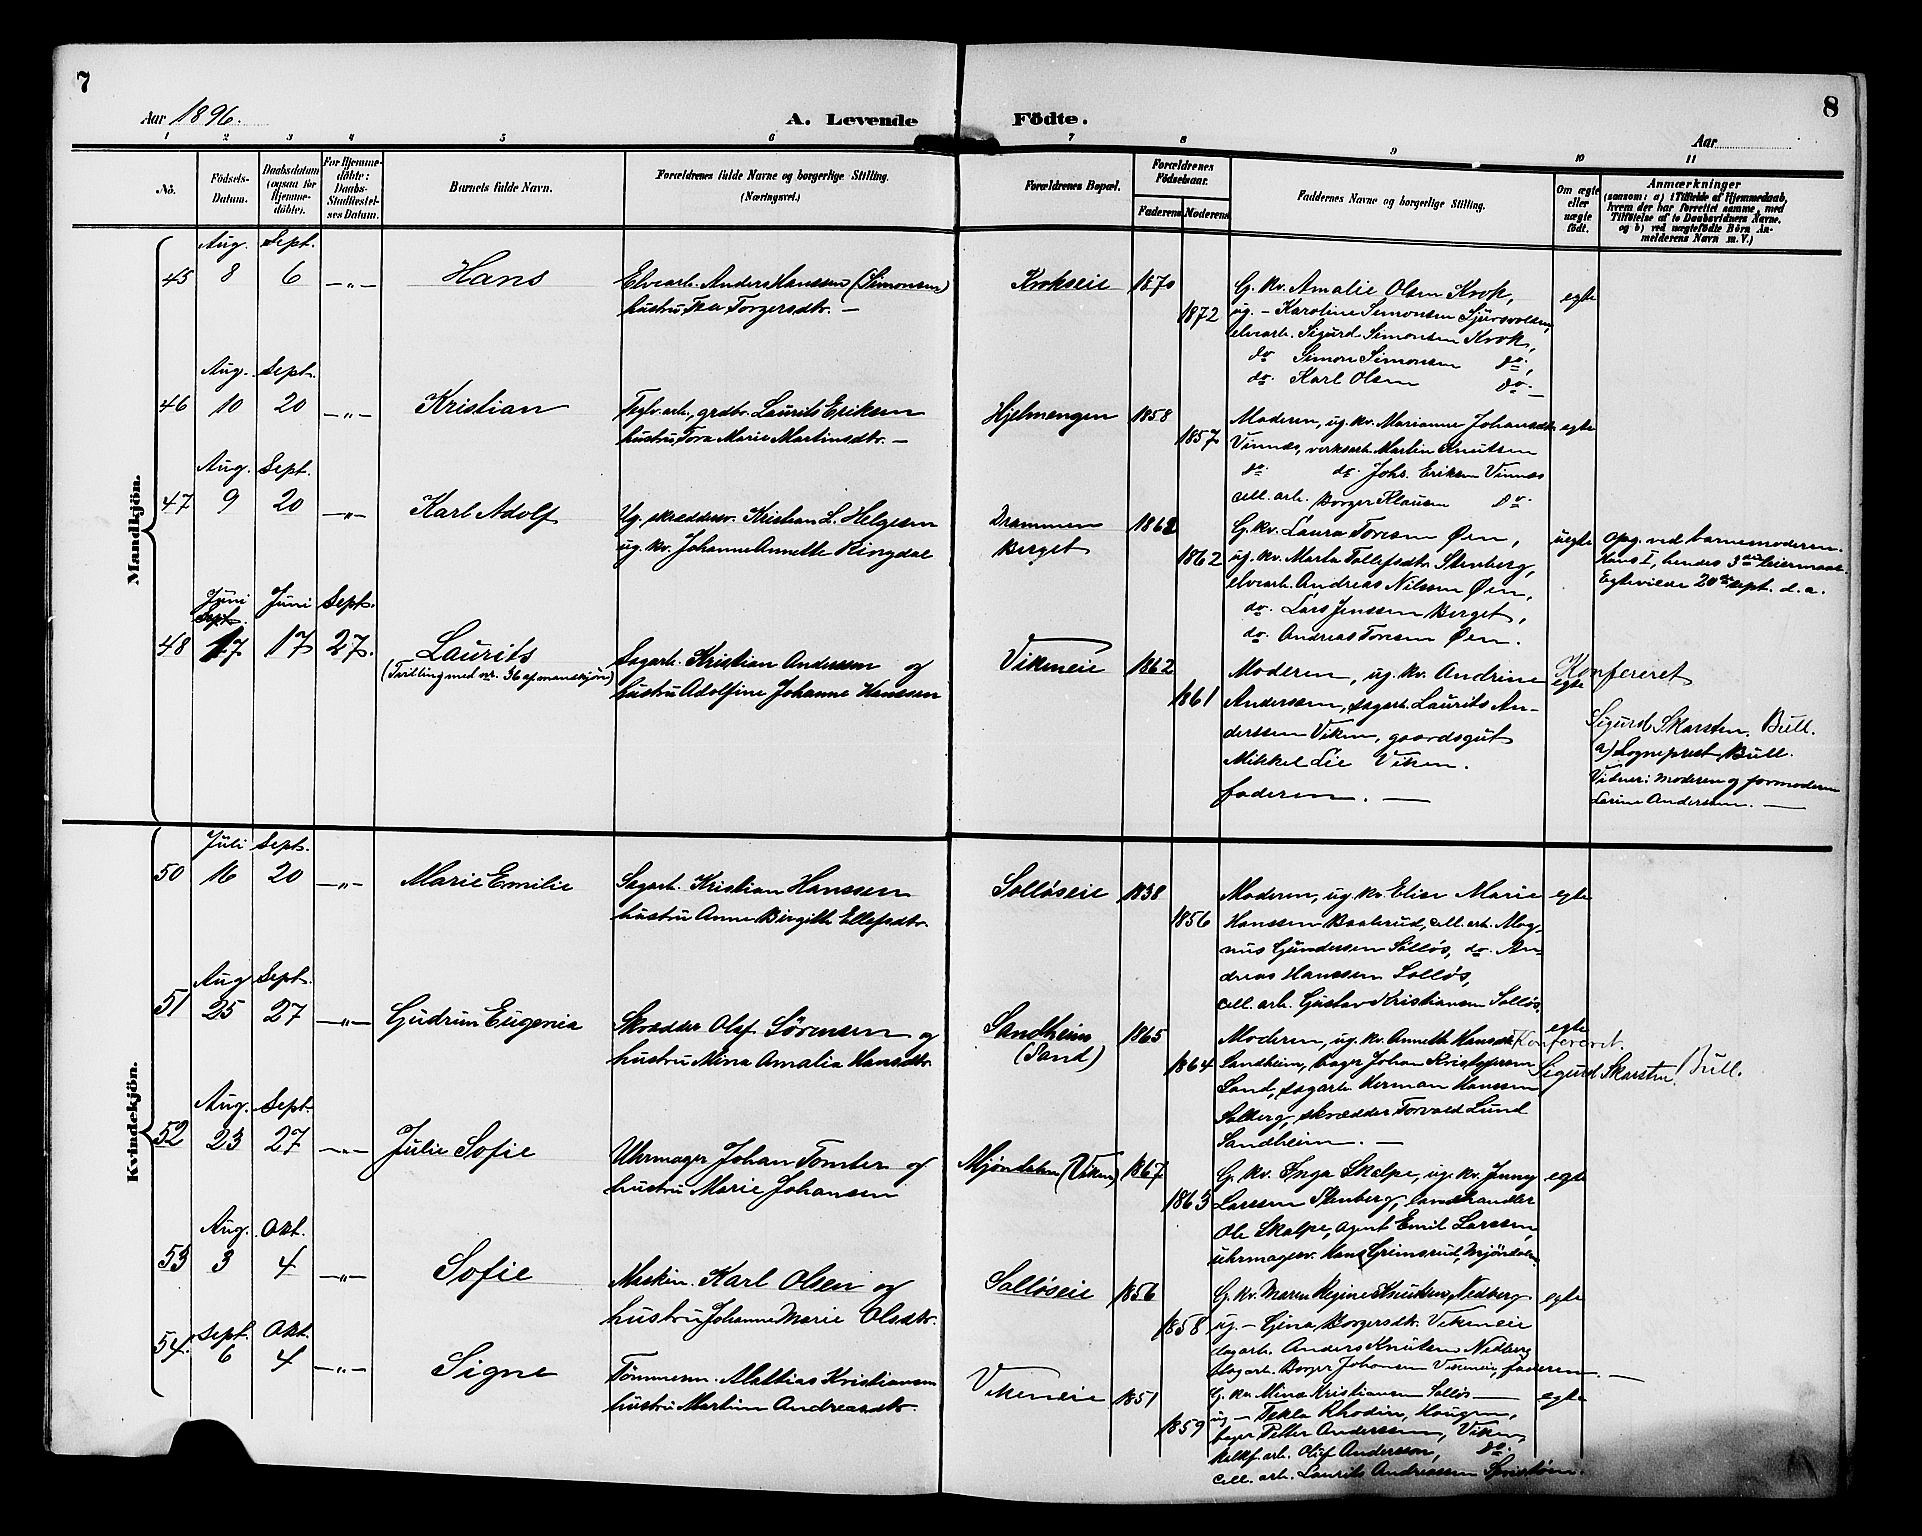 7
8
Aar 1896.
A. Levende Födte.
Aar
1 2 3 4 5 6 7 8 9 10 11
No.
Födsels-Datum.
Daabsdatum (ogsaa for Hjemmedöbte).
For Hjemmedöbte: Daabs-Stadfæstelses Datum.
Barnets fulde Navn.
Forældrenes fulde Navne og borgerlige Stilling. (Næringsvei.)
Forældrenes Bopæl.
Forældrenes Födselsaar.
Faderens
Moderens
Faddernes Navne og borgerlige Stilling.
Om ægte eller uægte födt.
Anmærkninger
(saasom: a) i Tilfælde af Hjemmedaab,
hvem der har forrettet samme, med
Tilföielse af to Daabsvidners Navne,
og b) ved uægtefödte Börn An-
melderens Navn m. V.)
Mandkjön.
Aug. Sept.
45 8 6 —"— Hans
Elvearb. Anders Hanssen (Simonsen)
hustru Torgersdtr. —
Krokseie 1870 1872
G. kv. Amalie Olsen Krok,
ug. — Karoline Simonsen Sjursvolden,
elvearb. Sigurd Simonsen Krok,
do Simon Simonsen do,
do. Karl Olsen do. —
egte
Aug. Sept.
46 10 20 —"— Kristian
Teglv.arb., grdbr. Laurits Eriksen
hustru Tora Marie Martinsdtr. —
Hjelmengen 1858 1857
Moderen, ug. kv. Marianne Johansdtr.
Vinnæs, verksarb. Martin Knutsen
do. do. Johs. Eriksen Vinnæs
cell. arb. Borger Klausen do.
egte
Aug. Sept.
47 9 20 —"— Karl Adolf
Ug. skræddersv. Kristian L. Helgesen
ug. kv. Johanne Annette Ringdal
Drammen
Berget
1862 1862
G. kv. Laura Toresen Øen,
ug. kv. Marta Tollefsdtr. Stenberg,
elvearb. Andreas Nilssen Øen,
do. Lars Jenssen Berget,
do. Andreas Toresen Øen.
uegte
Opg. ved barnemoderen.
Hans I, hendes 3die leiermaal.
Egteviede 20de sept. d. a.
Juni Juni Sept.
Sept.
48 17 17 27. Laurits
(Tvilling med nr. 36 af mandkjøn)
Sagarb. Kristian Andersen og
hustru Adolfine Johanne Hanssen
Vikeneie 1862 1861
Moderen, ug. kv. Andrine
Anderssen, sagarb. Laurits An-
derssen Viken, gaardsgut
Mikkel Lie Viken.
faderen. —
egte
Konfereret
Sigurd Skarsten. Bull.
a) Sogneprest Bull.
Vidner: moderen og formoderen
Larine Anderssen. —
Kvindekjön.
Juli Sept.
50 16 20 —"— Marie Emilie
Sagarb. Kristian Hanssen
hustru Anne Birgitte Ellefsdtr.
Solløseie 1838 1856
Moderen, ug. kv. Elise Marie
Hanssen Baaserud, cell. arb. Mag-
nus Gundersen Solløs, do. An-
dreas Hanssen Solløs,
cell. arb. Gustav Kristiansen Solløs.
egte
Aug Sept.
51 25 27 —"— Gudrun Eugenia
Skrædder Olaf Sørensen og
hustru Mina Amalia Hansdtr.
Sandheim
(Sand)
1865 1864
Moderen, ug. kv. Anneth Hansdtr.
Sandheim, bager Johan Kristofersen
Sand, sagarb. Herman Hanssen
Solberg, skrædder Torvald Lund
Sandheim. —
egte
Konfereret.
Sigurd Skarsten. Bull.
Aug. Sept.
52 23 27 —"— Julie Sofie
Uhrmager Johan Tomter og
hustru Marie Johansen
Mjøndalen (Viken) 1867 1863
G. kv. Inga Skalpe, ug. kv. Jenny
Larssen Stenberg, landhandler
Ole Skalpe, agent Emil Larssen,
uhrmagersv. Hans Grimsrud, Mjøndalen
egte
Aug. Okt.
53 3 4 —"— Sofie
Maskin. Karl Olsen og
hustru Johanne Marie Olsdtr.
Solløseie 1856 1858
G. kv. Maren Regine Knutsen, Nedberg
ug. — Gina Borgersdtr. Vikeneie
dagarb. Anders Knutsen Nedberg
dagarb. Borger Johansen Vikeneie, faderen. —
egte
Sept. Okt.
54. 6 4 —"— Signe
Tømmerm. Mathias Kristiansen
hustru Martine Andreasdtr.
Vikeneie 1851 1859
G. kv. Mina Kristiansen Solløs —
ug — Tekla Rhodin, Haugen,
bager Petter Anderssen, Viken,
kalkf. arb. Oluf Anderssen, do.
cell. arb. Laurits Andreassen
egte